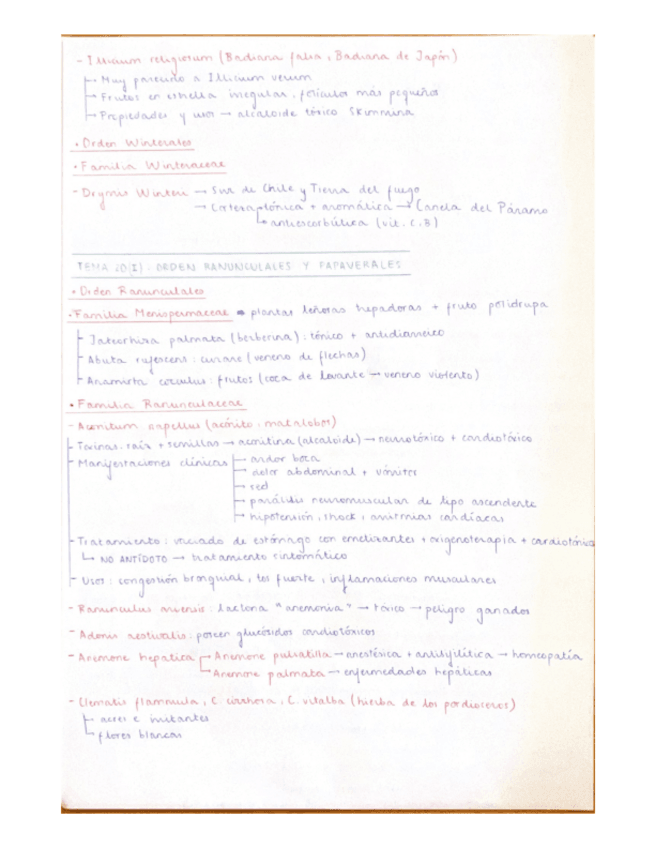 - Illicium religiosum (Badiana falsa, Badiana de Japón)
→ Muy parecido a Illicium verum
→ Frutos en estrella irregular. folículos más pequeños
→ Propiedades y usos → alcaloide tóxico Skimmina
• Orden Winterales
• Familia Winteraceae
- Drymis Winteri → Sur de Chile y Tierra del fuego
→ Corteza tónica + aromática → Canela del Páramo
↳ antiescorbútica (vit. C.B)
TEMA 10(I): ORDEN RANUNCULALES Y PAPAVERALES
• Orden Ranunculales
• Familia Menispermaceae → plantas leñosas trepadoras + fruto polidrupa
- Jateorhiza palmata (berberina): tónico + antidiarreico
- Abuta rufescens: curare (veneno de flechas)
- Anamirta cocculus: frutos (coca de levante → veneno violento)
• Familia Ranunculaceae
- Aconitum napellus (acónito. matalobos)
- Toxinas. raíz + semillas → aconitina (alcaloide) → neurotóxico + cardiotóxico
- Manifestaciones clínicas → ardor boca
→ dolor abdominal + vómitos
→ sed
→ parálisis neuromuscular de tipo ascendente
→ hipotensión, shock, arritmias cardíacas
- Tratamiento: vaciado de estómago con emetizantes + oxigenoterapia + cardiotónicos
↳ NO ANTÍDOTO → tratamiento sintomático
- Usos: congestión bronquial, tos fuerte, inflamaciones musculares
- Ranunculus arvensis: lactona "anemonia" → tóxico → peligro ganados
- Adonis aestivalis: poseen glucósidos cardiotóxicos
- Anemone hepatica → Anemone pulsatilla → anestésica + antisifilítica → homeopatía
→ Anemone palmata → enfermedades hepáticas
- Clematis flammula, C. cirrhosa, C. vitalba (hierba de los pordioseros)
→ acres e irritantes
→ flores blancas